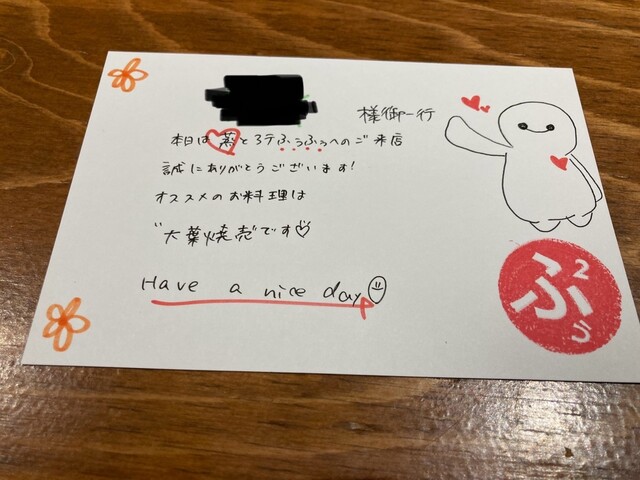 様御一行
本日は 蒸と ふぅふぅへのご来店
誠にありがとうございます!
オススメのお料理は
"大葉焼売"です
Have a nice day
ふ2ぅ